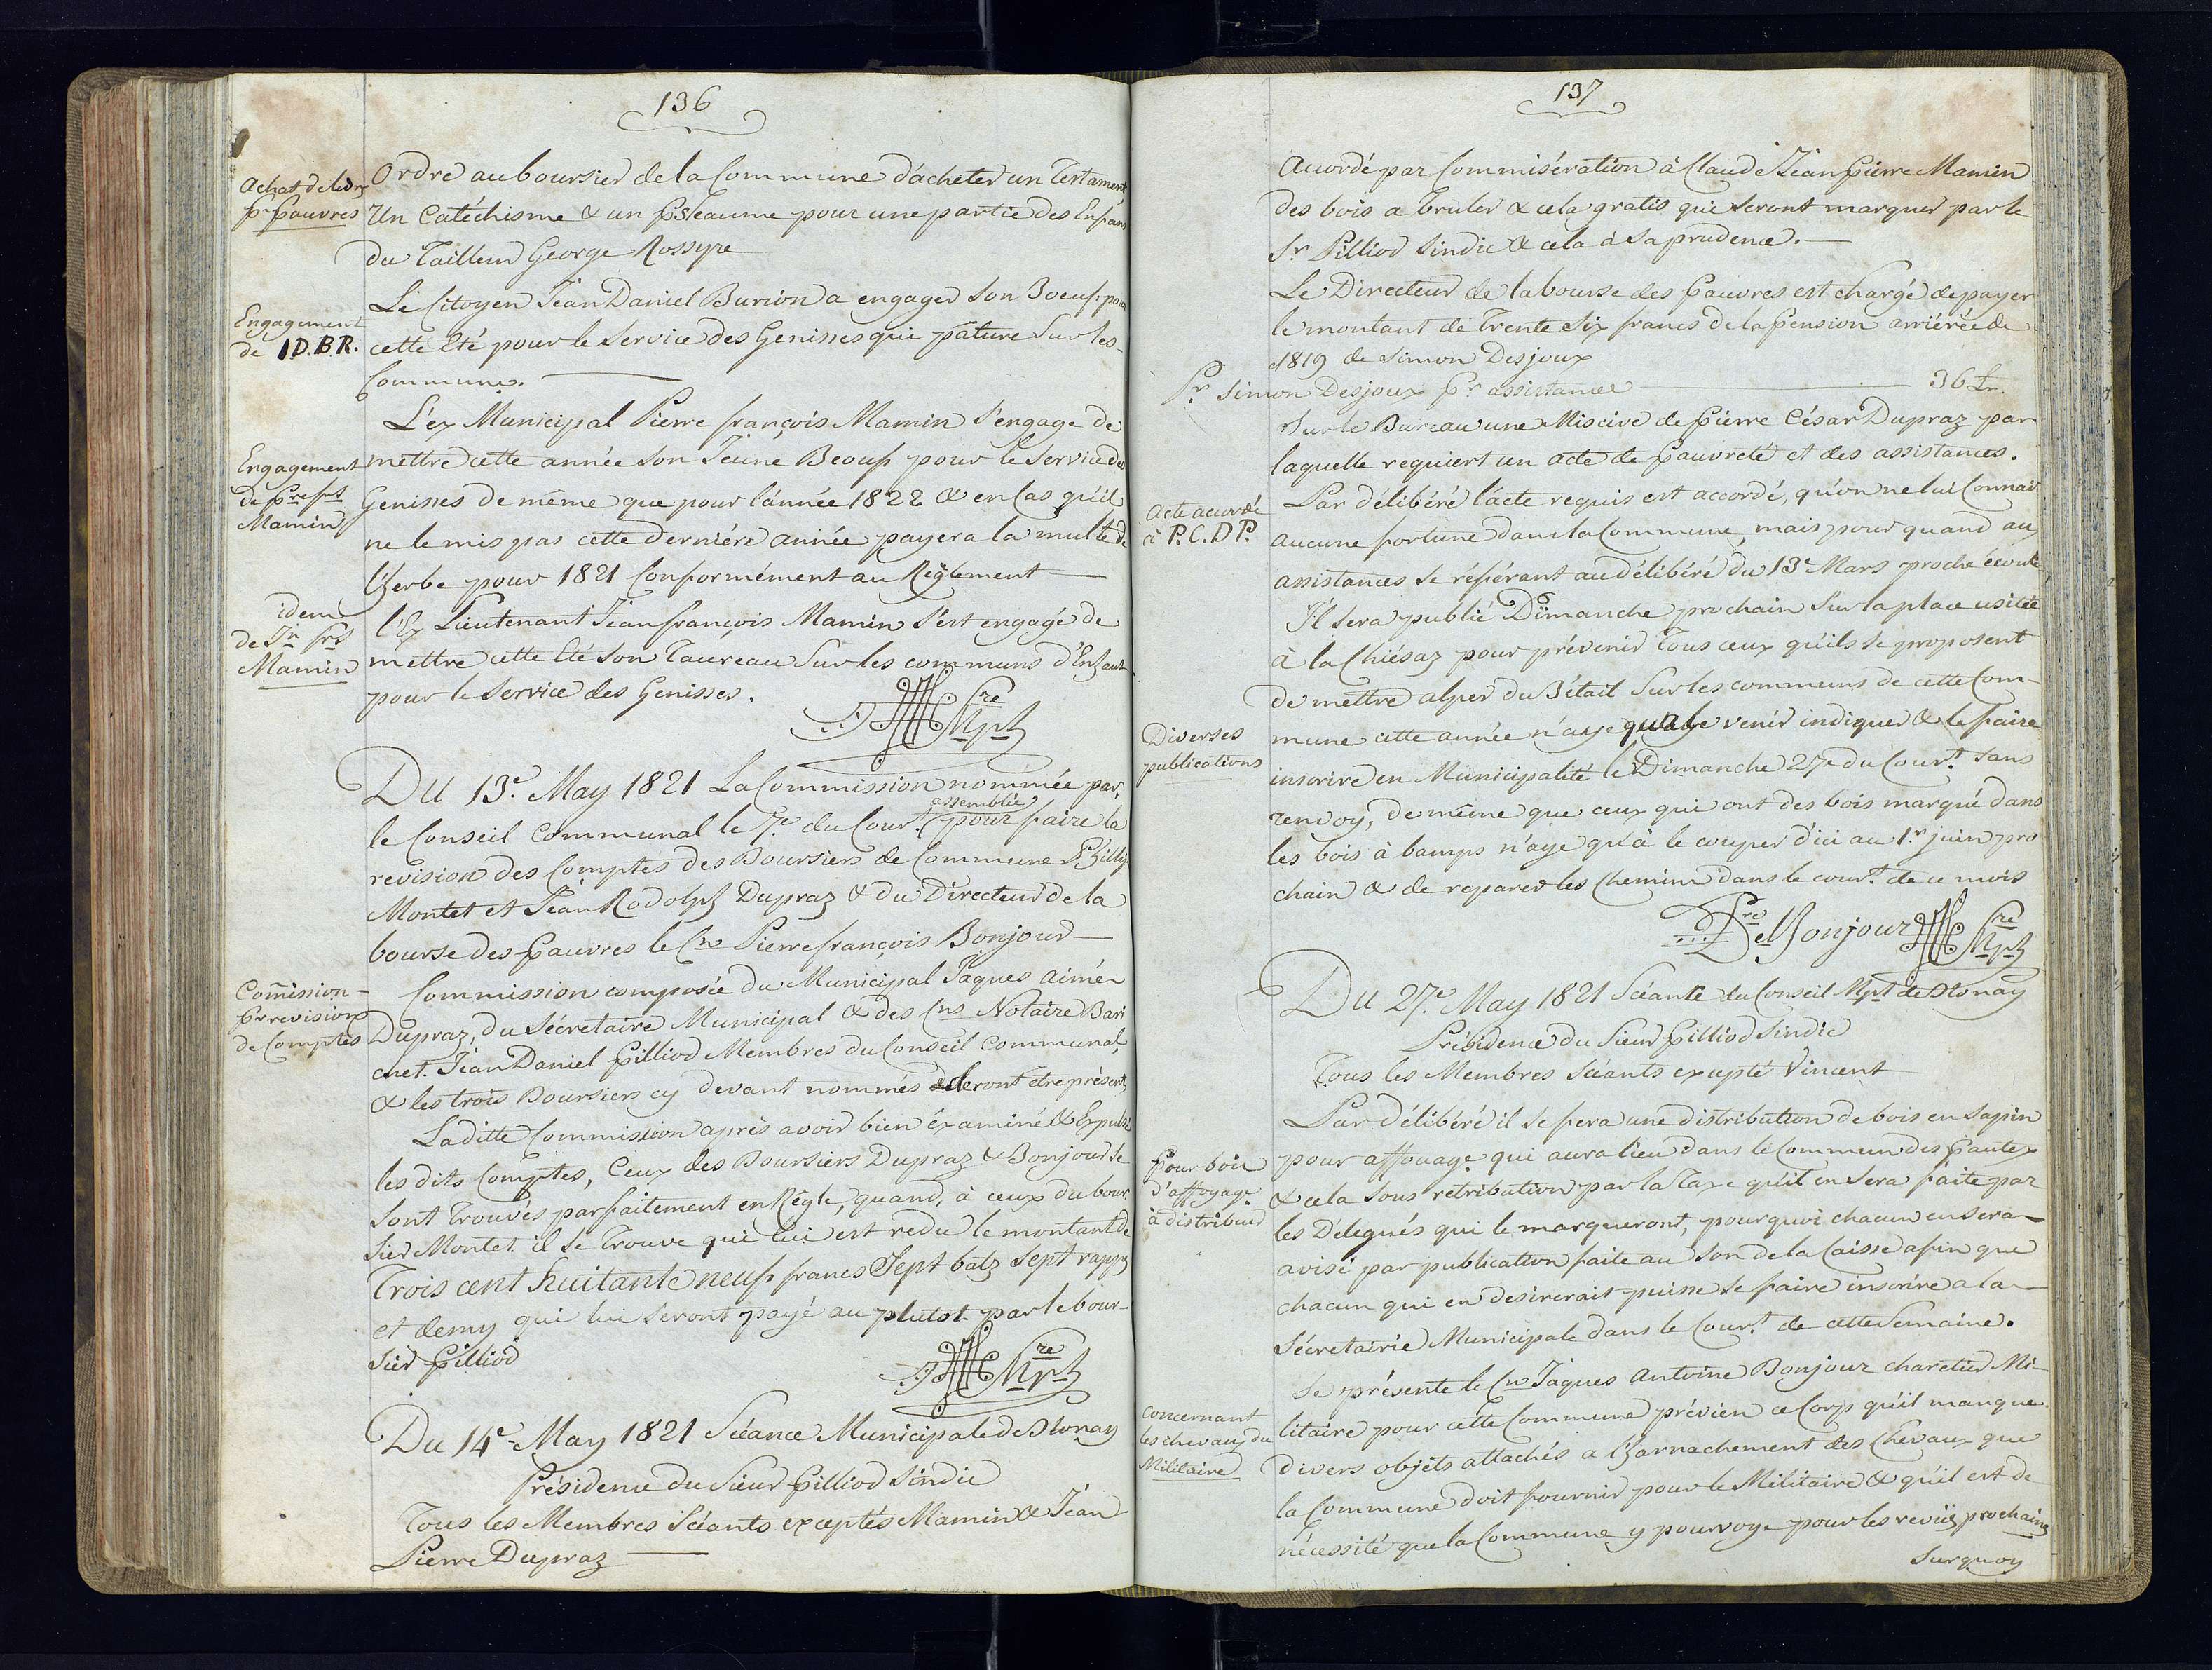 136
Achat de livrs
pr pauvres
Ordre au boursier de la Commune d'acheter un Testament,
Un Catéchisme & un Psteaume pour une partie des Enfans
du Tailleur George Rossyre
Engagement
de I.D.B.R.
Le Citoyen Jéan Daniel Burion a engager son Boeuf pour
cette Eté pour le service des Genisses qui pature sur les
Commune.
Engagement
de Pre frs
Mamin
L'ex Municipal Pierre françois Mamin s'engage de
mettre cette année son Jeune Beouf pour le service des
Genisses de même que pour l'année 1822 & en cas qu'il
ne le mis pas cette derniére année payera la multe de
l'herbe pour 1821 Conformément au Règlement
idem
de Jn frs
Mamin
l'Ex Lieutenant Jéan françois Mamin s'est engagé de
mettre cette Eté son Taureau sur les communs d'Enhaut
pour le service des Genisses.
Sre
Mpl
Du 13e. May 1821 La Commission nommée par
le Conseil Communal le 7e. du Court. assemblée pour faire la
revision des Comptes des Boursiers de Commune Phillip
Montet et Jéan Rodolph Dupraz & du Directeur de la
bourse des pauvres le Cn Pierre françois Bonjour
Commission
pr revision
de Comptes
Commission composée du Municipal Jaques aimé
Dupraz, du Sécretaire Municipal & des Cns Notaire Bari
chet. Jéan Daniel Pilliod Membres du Conseil Communal,
& les trois Boursiers cy devant nommés devront être présents
Laditte Commission après avoir bien éxaminé & Expulsé
les dits Comptes, Ceux des Boursiers Dupraz & Bonjour se
sont trouvés parfaitement en Régle, quand, à ceux du bour
sier Montet. il se trouve que lui est redu le montant de
Trois cent huitante neuf francs Sept batz sept rapps
et demy qui lui seront payé au plutot par le bour-
sier Pilliod
Sre
Mpl
Du 14e May 1821 Séance Municipale de Blonay
Présidence du Sieur Pilliod Sindic
Tous les Membres Séants exceptés Mamin & Jéan
Pierre Dupraz
137
Accordé par Commisération à Claude Jéan Pierre Mamin
des bois a bruler & cela gratis qui seront marquer par le
Sr Pilliod Sindic & cela à sa prudence.
Le Directeur de la bourse des pauvres est chargé de payer
le montant de trente six francs de la pension arriérée de
1819 de Simon Desjoux
Pr. Simon Desjoux pr assistance 36 fr.
Sur le Bureau une Miscive de Pierre César Dupraz par
laquelle requiert un acte de pauvreté et des assistances.
Acte accordé
à P.C.DP.
Par délibéré l'acte requis est accordé, qu'on ne lui Connait
aucune fortune dans la Commune, mais pour quand aux
assistances se référant au délibéré du 13e Mars proche écoulé
Il sera publié Dimanche prochain sur la place usitée
à la Chiésaz pour prévenir tous ceux qu'ils se proposent
de mettre alper du Bétail sur les communs de cette Com-
Diverses
publications
mune cette année n'aye qu'à le venir indiquer & le faire
inscrire en Municipalité le Dimanche 27e du Court. sans
renvoy, de même que ceux qui ont des bois marqué dans
les bois à bamps n'aye qu'à le couper d'ici au 1r juin pro
chain & de reparer les chemins dans le court. de ce mois
Bonjour
Sre
Mpl
Du 27e. May 1821 Scéante du Conseil Mpl de Blonay
Présidence du Sieur Pilliod Sindic
Tous les Membres Séants expté Vincent
Pour bois
d'affoyage
à distribuer
Par délibéré il se fera une distribution de bois en sapin
pour affouage qui aura lieu dans le Commun des Gautex
& cela sous rétribution par la Taxe qu'il en sera faite par
les Délegués qui le marqueront, pourquoi chacun en sera
avisé par publication faite au son de la Caisse afin que
chacun qui en desirerait puisse se faire inscrire a la
Sécretairie Municipale dans le Court. de cette Semaine.
Concernant
les chevaux du
Militaire
Se présente le Cn Jaques Antoine Bonjour charetier Mi-
litaire pour cette Commune prévien ce Corps qu'il manque
divers objets attachés a l'harnachement des Chevaux que
la Commune doit fournir pour le Militaire & qu'il est de
nécessité que la Commune y pourvoye pour les revües prochaines
Surquoy